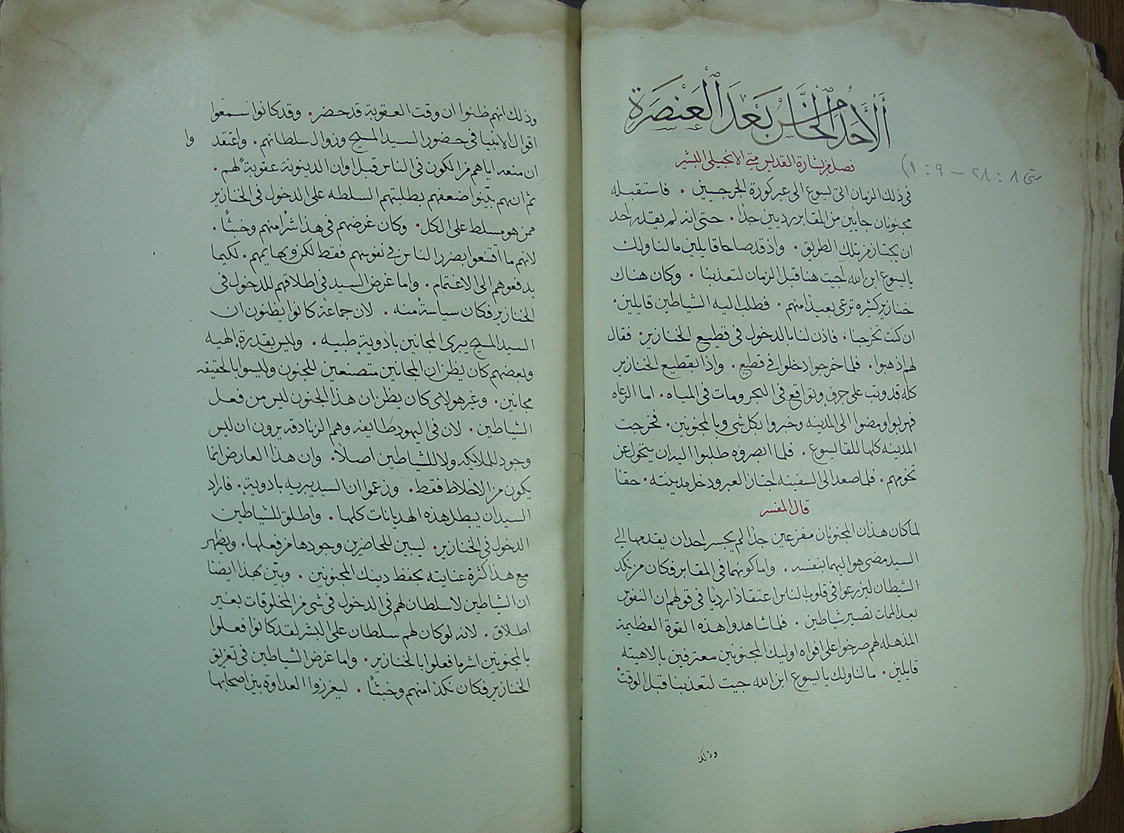 ألأحد الخامس بعد العنصرة
فصل من بشارة القديس متى الانجيلي البشير
متى ٨: ٢٨ - ٩: ١)
في ذلك الزمان اتى يسوع الى عبر كورة الجرجسيين . فاستقبله
مجنونان جايين من المقابر رديين جدا . حتى انه لم يقدر احد
ان يجتاز من تلك الطريق . واذ قد صاحا قايلين ما لنا ولك
يا يسوع ابن الله اجيت هنا قبل الزمان لتعذبنا . وكان هناك
خنازير كثيره ترعى بعيدا منهم . فطلب اليه الشياطين قايلين .
ان كنت تخرجنا . فاذن لنا بالدخول في قطيع الخنازير . فقال
لهم اذهبوا . فلما خرجوا دخلوا في قطيع . واذا بقطيع الخنازير
كله قد وثبت على جرف وتواقع في البحر ومات في المياه . اما الرعاه
فهربوا ومضوا الى المدينه وخبروا بكل شي وبالمجنونين . فخرجت
المدينه كلها للقا يسوع . فلما ابصروه طلبوا اليه ان يتحول عن
تخومهم . فلما صعد الى السفينه اجتاز العبر ودخل مدينته . حقا
قال المفسر
لما كان هذان المجنونان مفزعين جدا لم يجسر احد ان يقدمها الى
السيد مضى هو اليهما بنفسه . واما كونهما في المقابر فكان من نكد
الشيطان ليزرعوا في قلوب الناس اعتقادا رديا في قولهم ان النفوس
بعد الممات تصير شياطين . فلما شاهدوا هذه القوة العظيمة
المذهله لهم صرخوا على افواه اوليك المجنونين معترفين بالاهيته
قايلين . ما لنا ولك يا يسوع ابن الله جيت لتعذبنا قبل الوقت
وذلك
وذلك انهم ظنوا ان وقت العقوبة قد حضر . وقد كانوا سمعوا
اقوال الانبيا في حضور السيد المسيح وزوال سلطانهم . واعتقد
وا
ان منعه اياهم من الكون في الناس قبل اوان الدينونة عقوبة لهم .
ثم انهم بينوا ضعفهم بطلبتهم السلطه على الدخول في الخنازير
ممن هو مسلط على الكل . وكان غرضهم في هذا شرا منهم وخبثا .
لانهم ما اقتنعوا بضرر الناس في نفوسهم فقط لكن وبهايمهم . لكيما
يدفعوهم الى الاغتمام . واما غرض السيد في اطلاقهم للدخول في
الخنازير فكان سياسة منه . لان جماعة كانوا يظنون ان
السيد المسيح يبري المجانين بادوية طبيه . وليس بقدرة الهيه
وبعضهم كان يظن ان المجانين متصنعين للجنون وليسوا بالحقيقه
مجانين . وغير هولاي كان يظن ان هذا الجنون ليس من فعل
الشياطين . لان في اليهود طايفه وهم الزنادقه يرون ان ليس
وجود للملايكه ولا للشياطين اصلا . وان هذا العارض انما
يكون من الاخلاط فقط . وزعموا ان السيد يبريه بادوية . فاراد
السيد ان يبطل هذه الهديانات كلها . واطلق للشياطين
الدخول في الخنازير . ليبين للحاضرين وجودها من فعلها . ويظهر
مع هذا كثرة عنايته بحفظ دينك المجنونين . وبين بهذا ايضا
ان الشياطين لا سلطان لهم في الدخول في شي من المخلوقات بغير
اطلاق . لانه لو كان لهم سلطان على البشر لقد كانوا فعلوا
بالمجنونين اشر ما فعلوا بالخنازير . واما غرض الشياطين في تغريق
الخنازير فكان نكدا منهم وخبثا . ليغرزوا العداوة بين اصحابها